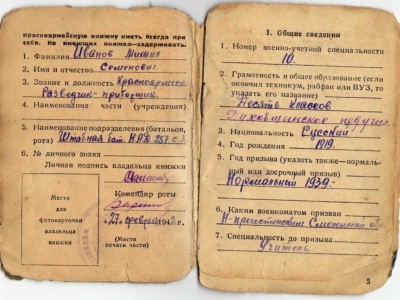 Красноармейскую книжку иметь всегда при
себе. Не имеющих книжки—задерживать.
1. Фамилия Иванов
2. Имя и отчество
Семенович
3. Звание и должность Красноармеец
Разведчик-
4. Наименование части (учреждения)
5. Наименование подразделения (батальон,
рота) Штабная бат.
6. № личного знака
Личная подпись владельца книжки
Командир роты
Место
для
фотокарточки
владельца
книжки
27 февраля 194
(Место
печати части)
I. Общие сведения
1. Номер военно-учетной специальности
10.
2. Грамотность и общее образование (если
окончил техникум, рабфак или ВУЗ, то
указать его название)
Десять классов
3. Национальность Русский
4. Год рождения 1919.
5. Год призыва (указать также—нормаль-
ный или досрочный призыв)
Нормальный 1939.
6. Каким военкоматом призван
Смоленской
7. Специальность до призыва
Учитель
5